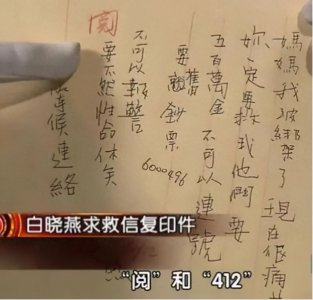 媽媽我被綁架了現在很痛苦
妳一定要救我他們要
五百萬金 不可以連號
要舊鈔票 6000496
不可以報警
要不然性命休矣
等候連絡
閱
白晓燕求救信复印件
“阅”和“412”